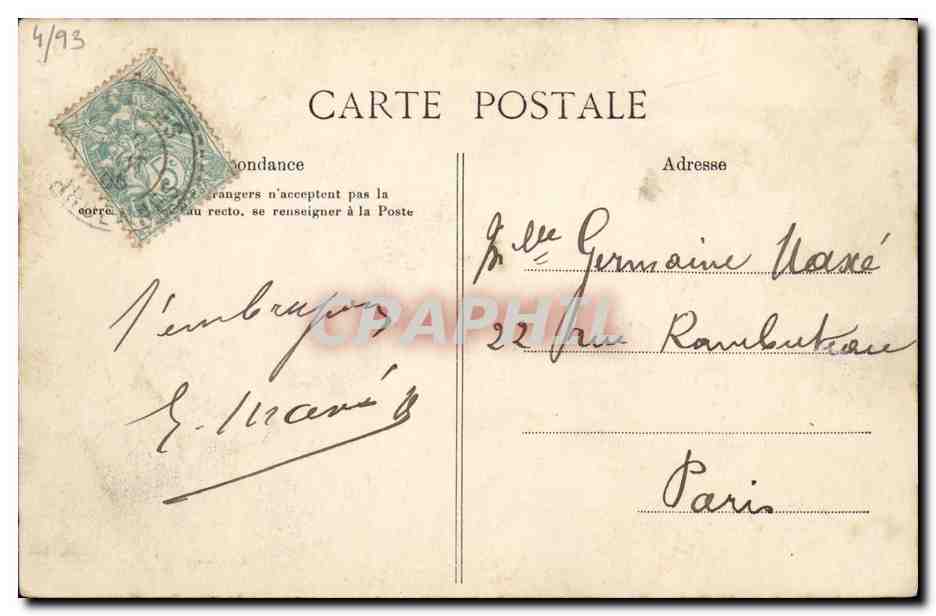 4/93
CARTE POSTALE
ondance
rangers n'acceptent pas la
corre au recto, se renseigner à la Poste
Adresse
Mlle Germaine
22 rue Rambuteau
Paris
E.
CPAPHIL